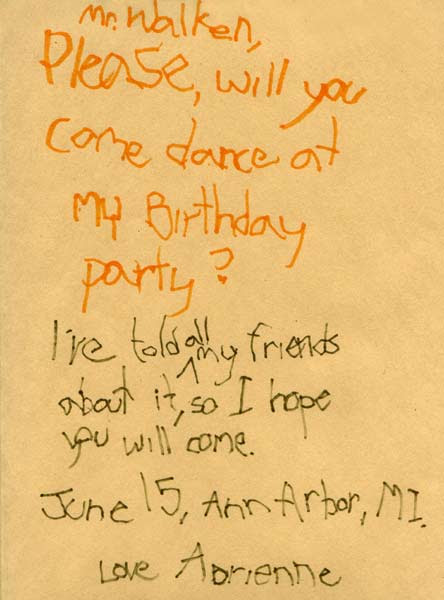 mr. Walken,
Please, will you
come dance at
my Birthday
party?
I've told all my friends
about it, so I hope
you will come.
June 15, Ann Arbor, MI.
Love Adrienne